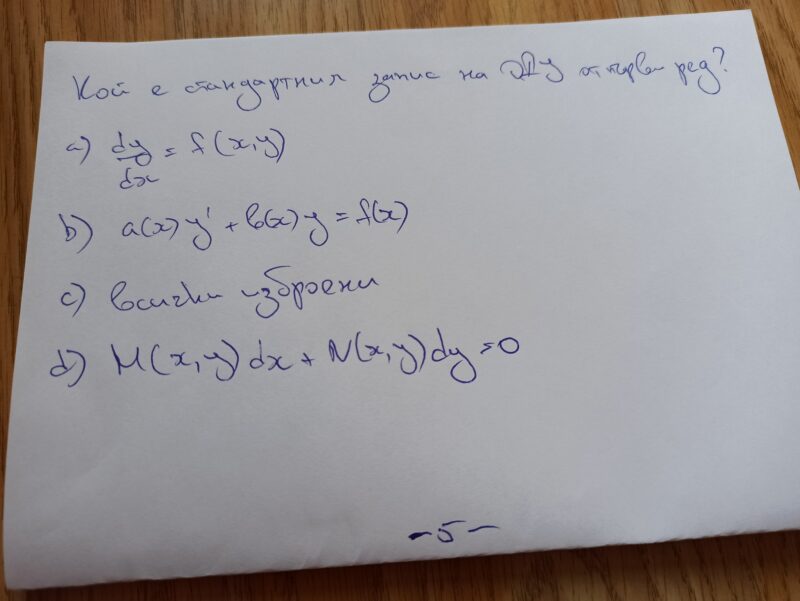 Кой е стандартния запис на ОДУ от първи ред?
a) dy/dx = f(x,y)
b) a(x)y' + b(x)y = f(x)
c) всички изброени
d) M(x,y)dx + N(x,y)dy = 0
- 5 -